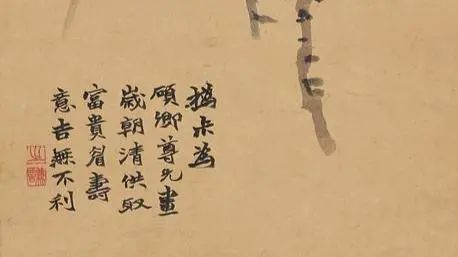 撝尗為
碩卿尊兄畫
歲朝清供取
富貴眉壽
意吉無不利